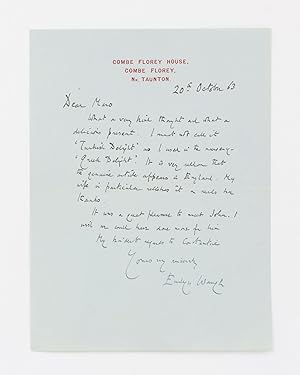 COMBE FLOREY HOUSE,
COMBE FLOREY,
Nr. TAUNTON.
20th October 63
Dear Maro
What a very kind thought and what a
delicious present. I must not call it
'Turkish Delight' as I used in the nursery -
'Greek Delight'. It is very seldom that
the genuine article appears in England. My
wife in particular relishes it & sends her
thanks.
It was a great pleasure to meet John. I
wish we could have done more for him
My kindest regards to
Yours very sincerely
Evelyn Waugh